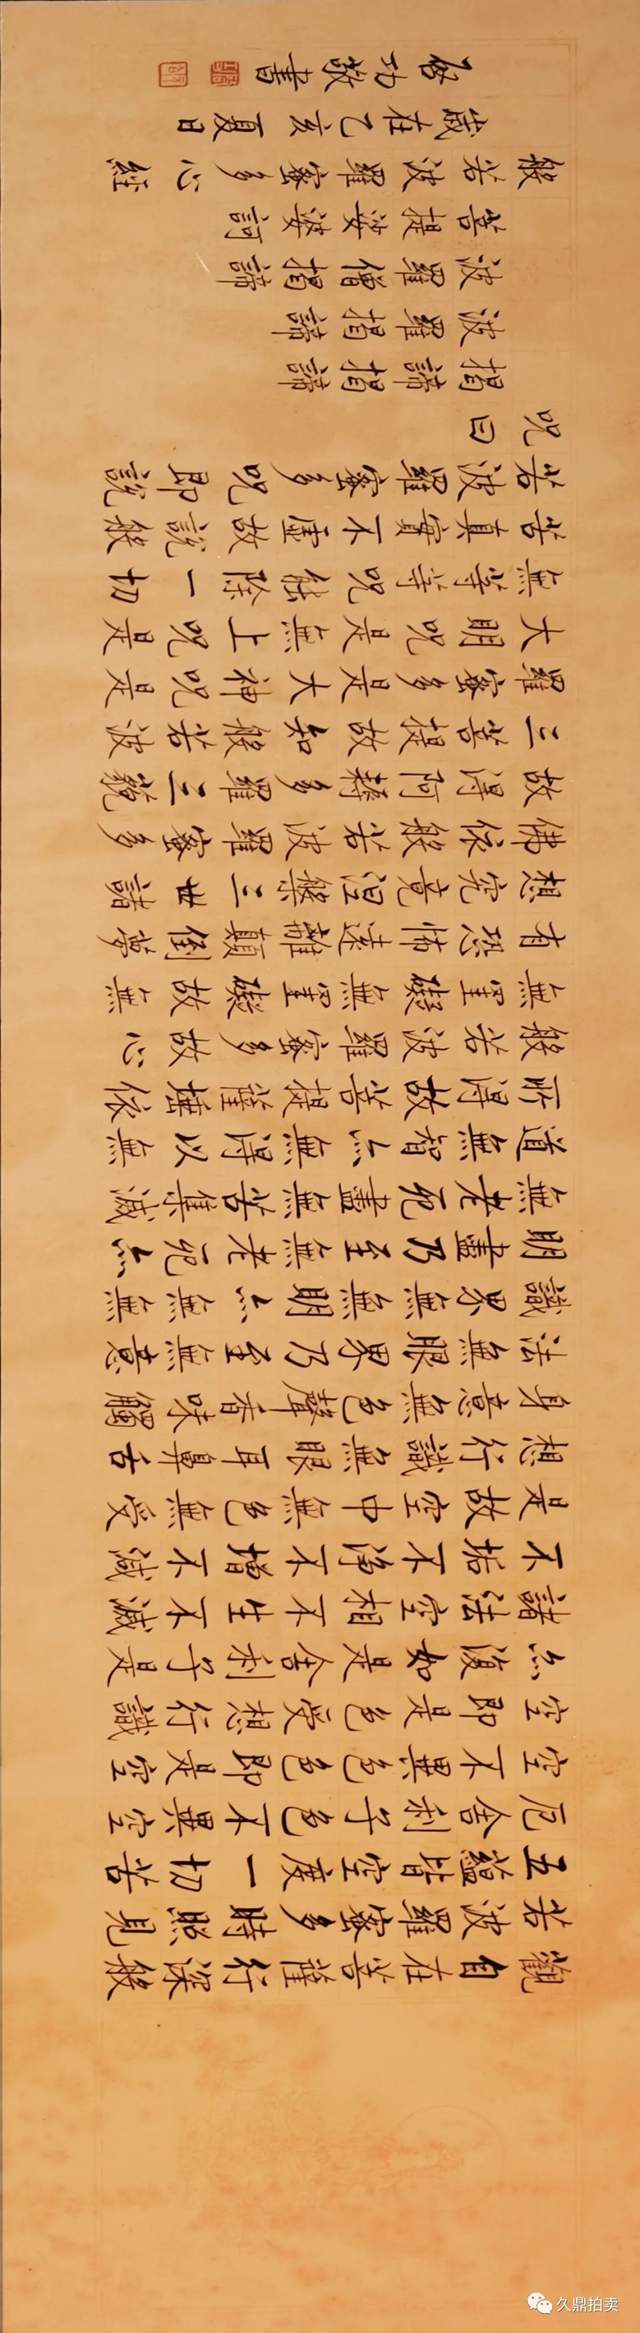 觀自在菩薩行深般
若波羅蜜多時照見
五蘊皆空度一切苦
厄舍利子色不異空
空不異色色即是空
空即是色受想行識
亦復如是舍利子是
諸法空相不生不滅
不垢不淨不增不減
是故空中無色無受
想行識無眼耳鼻舌
身意無色聲香味觸
法無眼界乃至無意
識界無無明亦無無
明盡乃至無老死亦
無老死盡無苦集滅
道無智亦無得以無
所得故菩提薩埵依
般若波羅蜜多故心
無罣礙無罣礙故無
有恐怖遠離顛倒夢
想究竟涅槃三世諸
佛依般若波羅蜜多
故得阿耨多羅三藐
三菩提故知般若波
羅蜜多是大神呪是
大明呪是無上呪是
無等等呪能除一切
苦真實不虛故說般
若波羅蜜多呪即說
呪曰
揭諦揭諦
波羅揭諦
波羅僧揭諦
菩提娑婆訶
般若波羅蜜多心經
歲在乙亥夏日
啟功敬書
久鼎拍卖